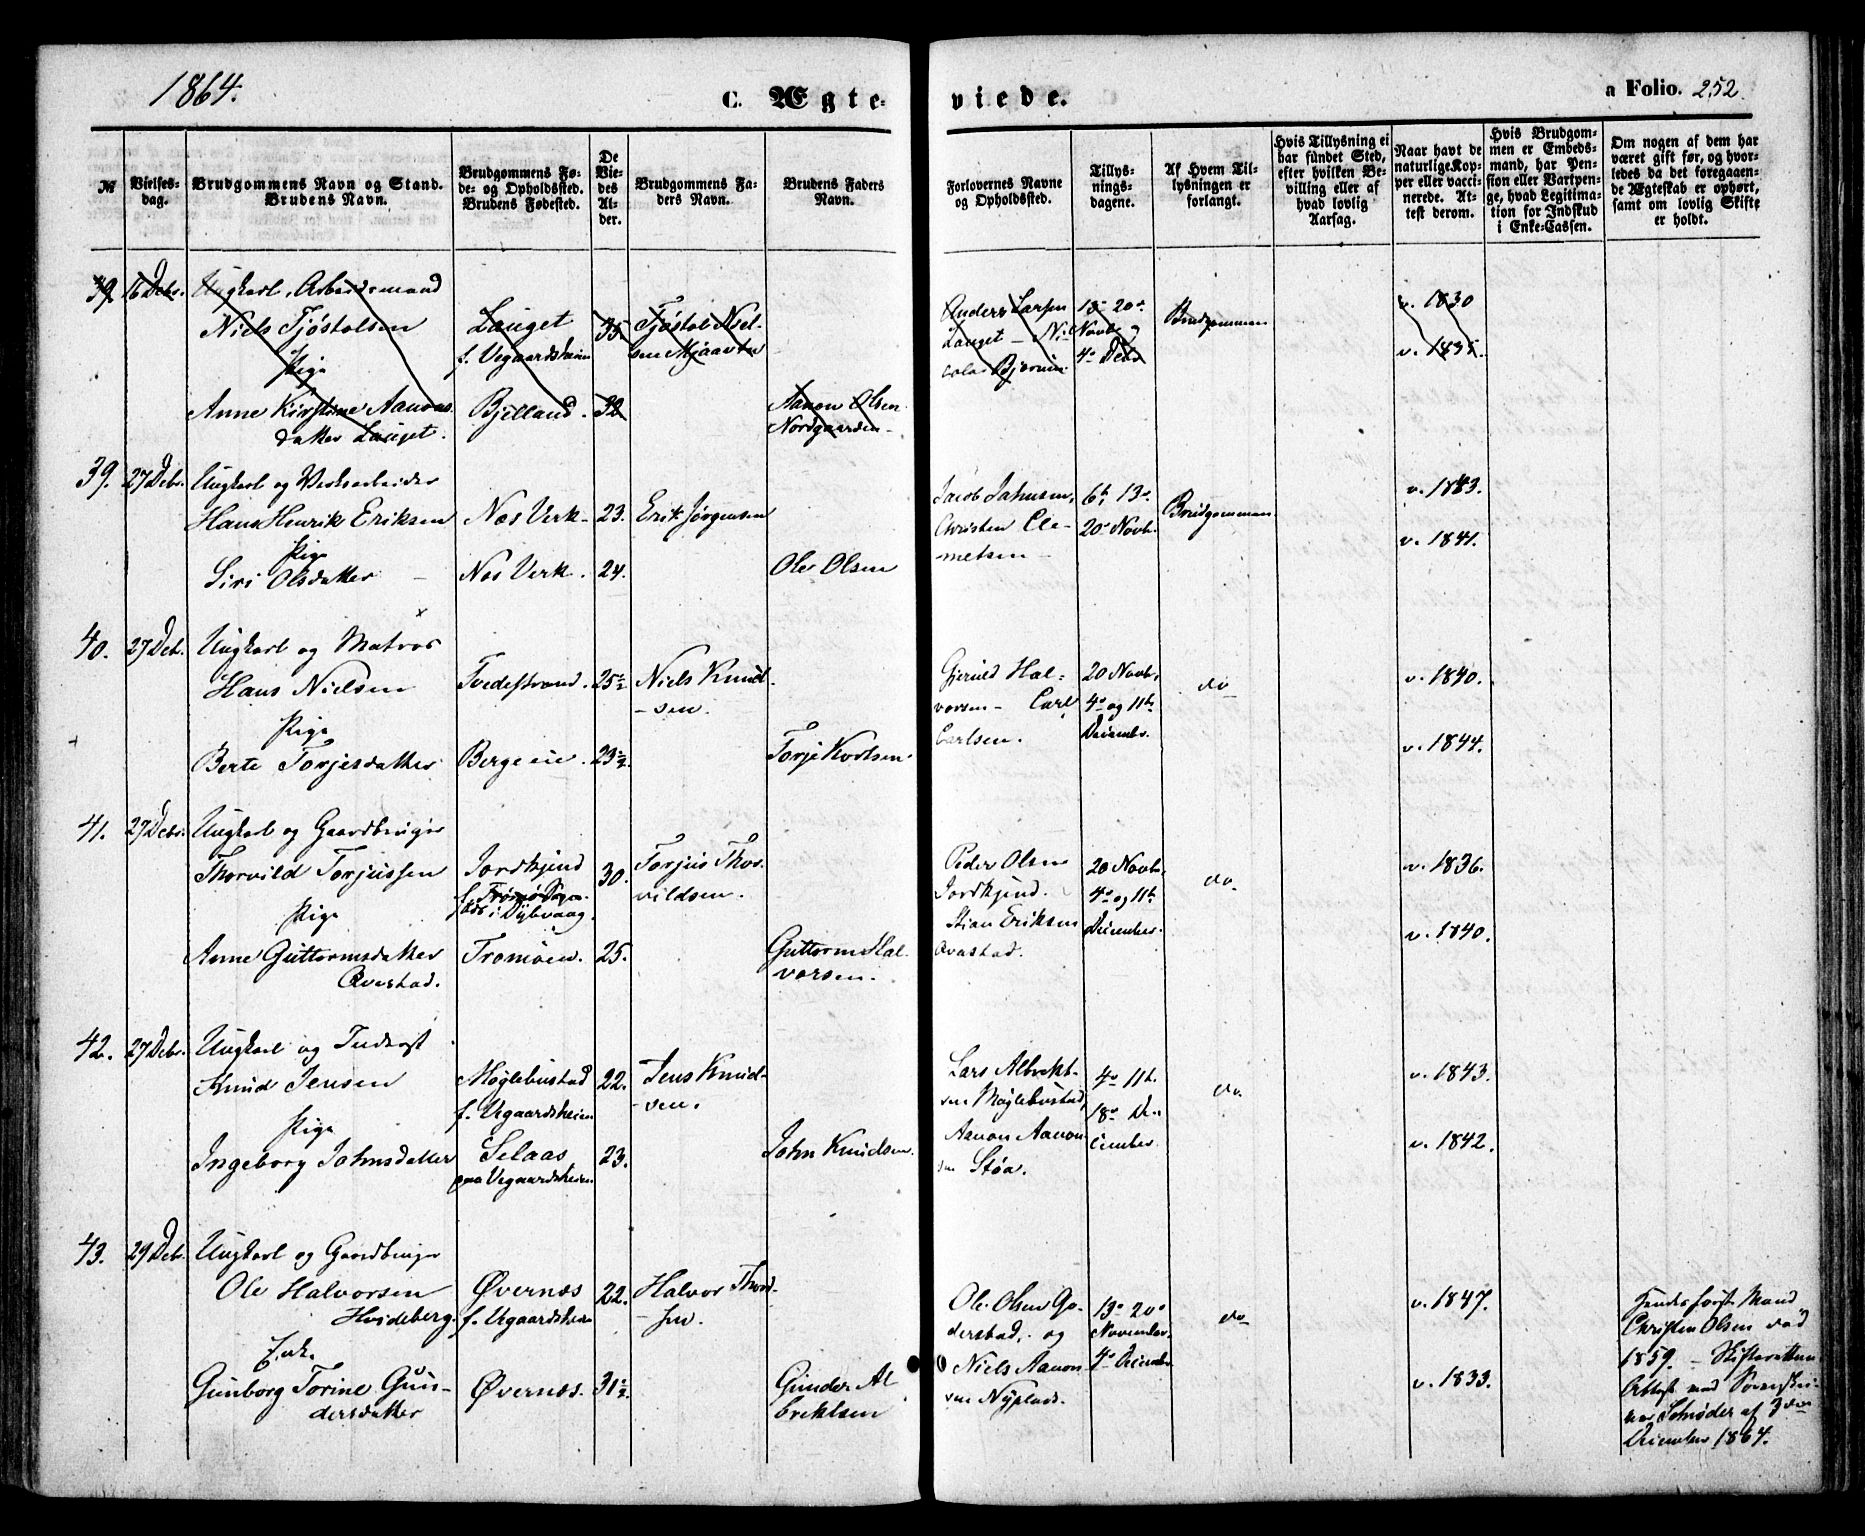 1864.
C. Ægte-
viede.
a Folio. 252.
№
Vielses-
dag.
Brudgommens Navn og Stand.
Brudens Navn.
Brudgommens Fø-
de- og Opholdssted.
Brudens Fødested.
De
Vie-
des
Al-
der.
Brudgommens Fa-
ders Navn.
Brudens Faders
Navn.
Forlovernes Navne
og Opholdssted.
Tillys-
nings-
dagene.
Af Hvem Til-
lysningen er
forlangt.
Hvis Tillysning ei
har fundet Sted,
efter hvilken Be-
villing eller af
hvad lovlig
Aarsag.
Naar havt de
naturlige Kop-
per eller vacci-
nerede. At-
test derom.
Hvis Brudgom-
men er Embeds-
mand, har Pen-
sion eller Vartpen-
ge, hvad Legitima-
tion for Indskud
i Enke-Cassen.
Om nogen af dem har
været gift før, og hvor-
ledes da det foregaaen-
de Ægteskab er ophørt,
samt om lovlig Skifte
er holdt.
39. 16 Debr. Ungkarl, Arbeidsmand
Niels Tjøstolsen
Pige
Anne Kirstine Aanons-
datter Lauget.
Lauget
f. Vegaardsheien
Bjelland.
35.
32
Tjøstol Niel-
sen Mjaavtn
Aanon Olsen
Nordgaarden
Anders Larsen
Lauget – Ni-
colai Bjornin
13de 20de
Novb. og
4de Debr
Brudgommen
v. 1830
v. 1835.
39. 27 Debr. Ungkarl og Verksarbeider
Hans Henrik Eriksen
Pige
Siri Olsdatter
Næs Verk
Næs Verk.
23.
24.
Erik Jørgensen
Ole Olsen
Jacob Jahnsen,
Christen Cle-
metsen
6te 13de
20de Novb.
Brudgommen
v. 1843.
v. 1841.
40. 27 Deb. Ungkarl og Matros
Hans Nielsen
Pige
Berte Torjesdatter
Tvedestrand.
Bergeeie.
25½
23½
Niels Knud-
sen.
Torje Kortsen
Gjeruld Hal-
vorsen – Carl
Carlsen.
20 Novb.
4de og 11te
Decembr.
do
v. 1840.
v. 1844.
41. 27 Debr. Ungkarl og Gaardbruger
Thorvild Torjussen
Pige
Anne Guttormsdatter
Øvestad.
Jordkjend
i Dybvaag.
Tromøen.
30.
25.
Torjus Thor-
vildsen.
Guttorm Hal-
vorsen.
Peder Olsen
Jordkjend.
Stian Eriksen
Øvestad.
20 Novb.
4de og 11te
December.
do.
v. 1836.
v. 1840.
42. 27 Debr. Ungkarl og Inderst
Knud Jensen
Pige
Ingeborg Johnsdatter
Møglebustad
f. Vegaardsheien
Selaas
paa Vegaardsheien
22.
23.
Jens Knud-
sen.
John Knudsen.
Lars Albrekt-
sen Møglebustad,
Aanon Aanon-
sen Støa.
4de 11te
18de De-
cember.
do.
v. 1843.
v. 1842.
43. 29 Deb. Ungkarl og Gaardbruger
Ole Halvorsen
Hvideberg.
Enke
Gunborg Torine Gun-
dersdatter
Øvernæs
f. Vegaardsheien
Øvernæs.
22.
31½
Halvor Thord-
sen.
Gunder Al-
brektsen
Ole Olsen Go-
derstad, og
Niels Aanon-
sen Nyplads.
13de 20de
November
4de December
do
v. 1847.
v. 1833.
Hendes første Mand
Christen Olsen død
1859. – Skifteretten
Attest ved Sorenskri-
ver Schrøder af 3die
December 1864.